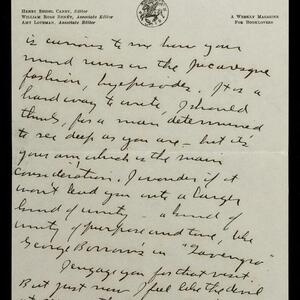 HENRY SEIDEL CANBY, Editor
WILLIAM ROSE BENÉT, Associate Editor
AMY LOVEMAN, Associate Editor
A WEEKLY MAGAZINE
FOR BOOKLOVERS
is curious to me how your
mind runs in the picaresque
fashion, by episodes. It is a
hard way to write, I should
think, for a man determined
to see deep as you are – but it's
your aim which is the main
consideration. I wonder if it
won't lead you into a larger
kind of unity – a kind of
unity of purpose and tone, like
George Borrow's in "Lavengro"
I engage you for that visit.
But just now I feel like the devil